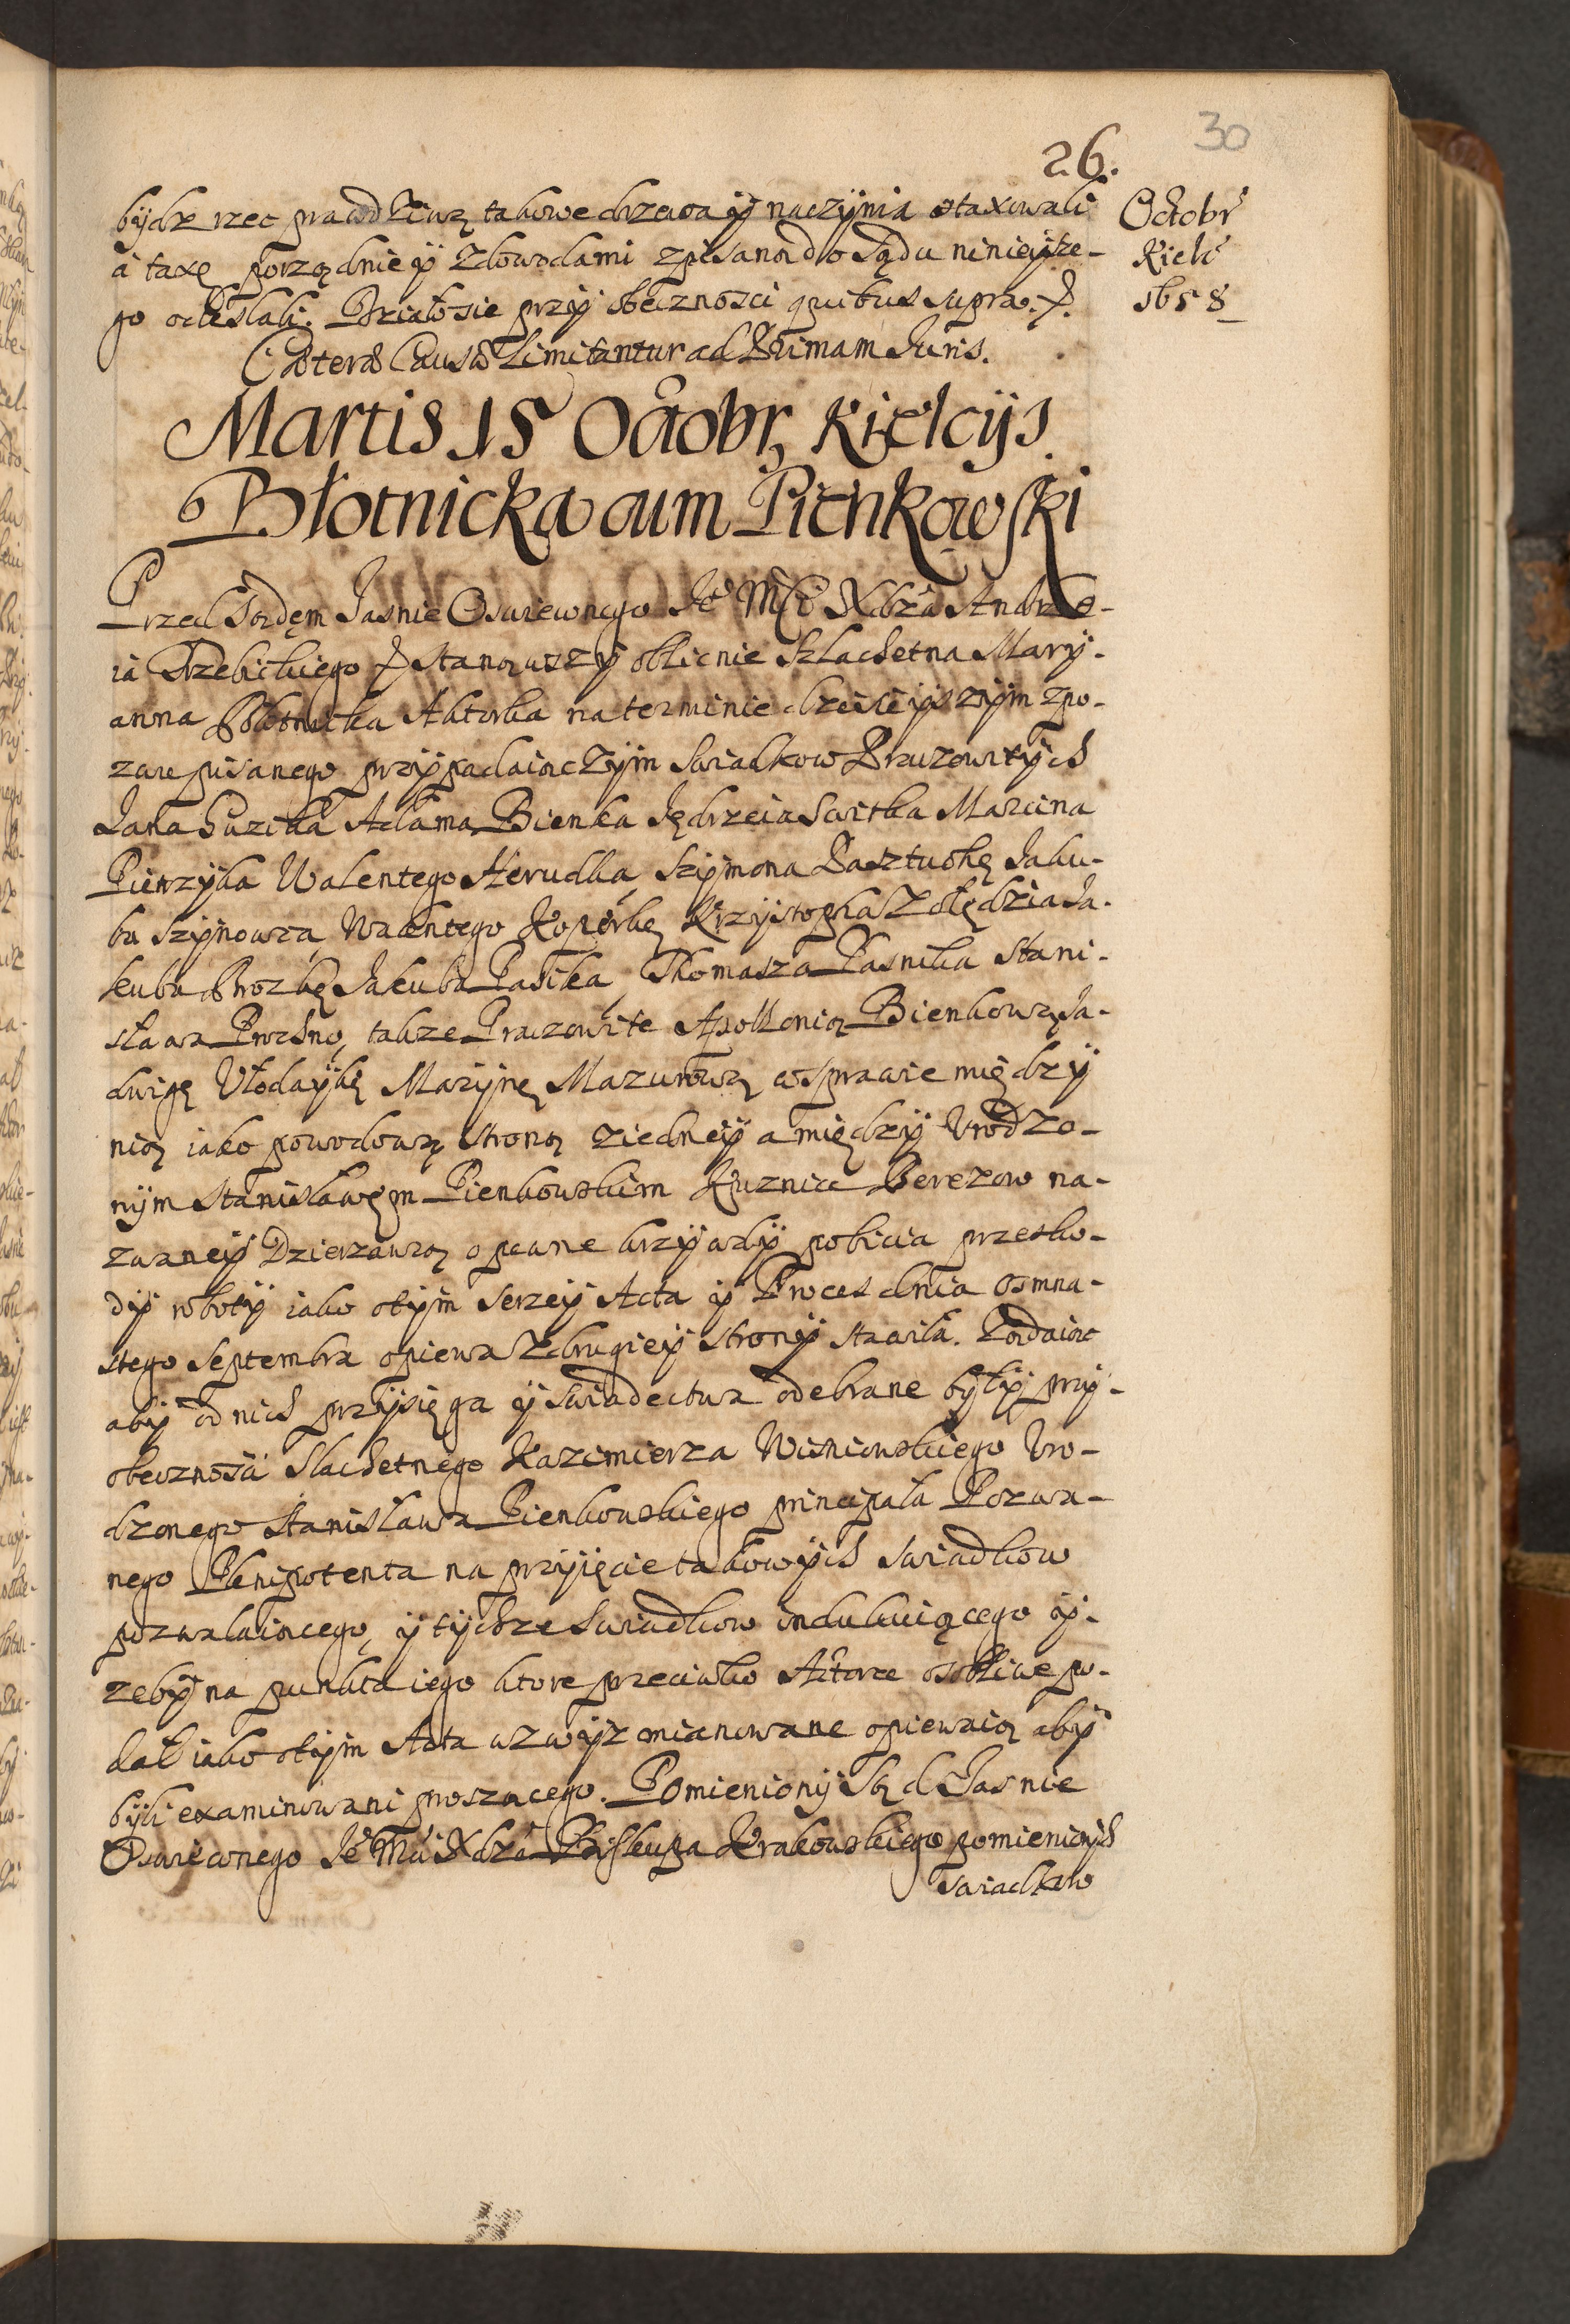 30
26.
Octobr
Kielc
1658
bydz rzecz prawdziwą takowe drzewa ÿ naczÿnia otaxowali
a taxę porządnie ÿ zdowodami zpisaną do Sądu ninieÿsze-
go odesłali. Działo sie przÿ obecznosci quibus supra.
Cæteræ Causæ Limitantur ad Primam Juris.
Martis 15 Octobr, Kielcijs.
Błotnicka cum Pienkowski
Przed Sądęm Jasnie Oswieconego Je Mści Xdza Andrze-
ia Trzebickiego Stanąwszÿ oblicnie Szlachetna Marÿ-
anna Błotnicka Aktorka na terminie dzisieÿszÿm zpo-
zwu pisanego przÿpadaiączÿm Swiadkow Praczowitÿch
Jana Guzika Adama Bienka Jędrzeia Switka Marcina
Pietrzÿka Walentego Skrudka Szÿmona Pasztuchę Jaku-
ba Szÿnowca Walentego Koperkę Krzÿstopha Zołędzia Ja-
kuba Brozkę Jakuba Pasika, Thomasza Pasnika Stani-
sława Prochno, takze Praczowite Apollonią Bienkową Ja-
dwigę Włodaÿkę Marÿnę Mazurową wsprawie międzÿ
nią iako powodową stroną ziedneÿ a międzÿ Urodzo-
nÿm Stanisławęm Pienkowskim Kuznice Berezow na-
zwaneÿ Dzierzawcą o pewne krzÿwdÿ pobicia przeszko-
dÿ robotÿ iako otÿm szerzeÿ Acta ÿ Proces dnia osmna-
stego Septembra opiewa Zdrugieÿ stronÿ stawiła. Ządaiąc
abÿ od nich przÿsięga ÿ swiadectwa odebrane bÿłÿ, przÿ-
obecznosci Slachetnego Kazimierza Wisniowskiego Uro-
dzonego Stanisława Pienkowskiego principała Pozwa-
nego Plenipotenta na przÿięcie takowÿch swiadkow
pozwalaiącego, ÿ tÿchze Swiadkow indukuiącego ÿ-
zebÿ na punkta iego ktore przeciwko Aktorce osobliwe po-
dał iako otÿm Acta wzwÿz mianowane opiewaią abÿ
bÿli examinowani proszącego. Pomienionÿ Sąd Jasnie
Oswieconego Je Mści Xdza Biskupa Krakowskiego pomienionÿch
swiadkow